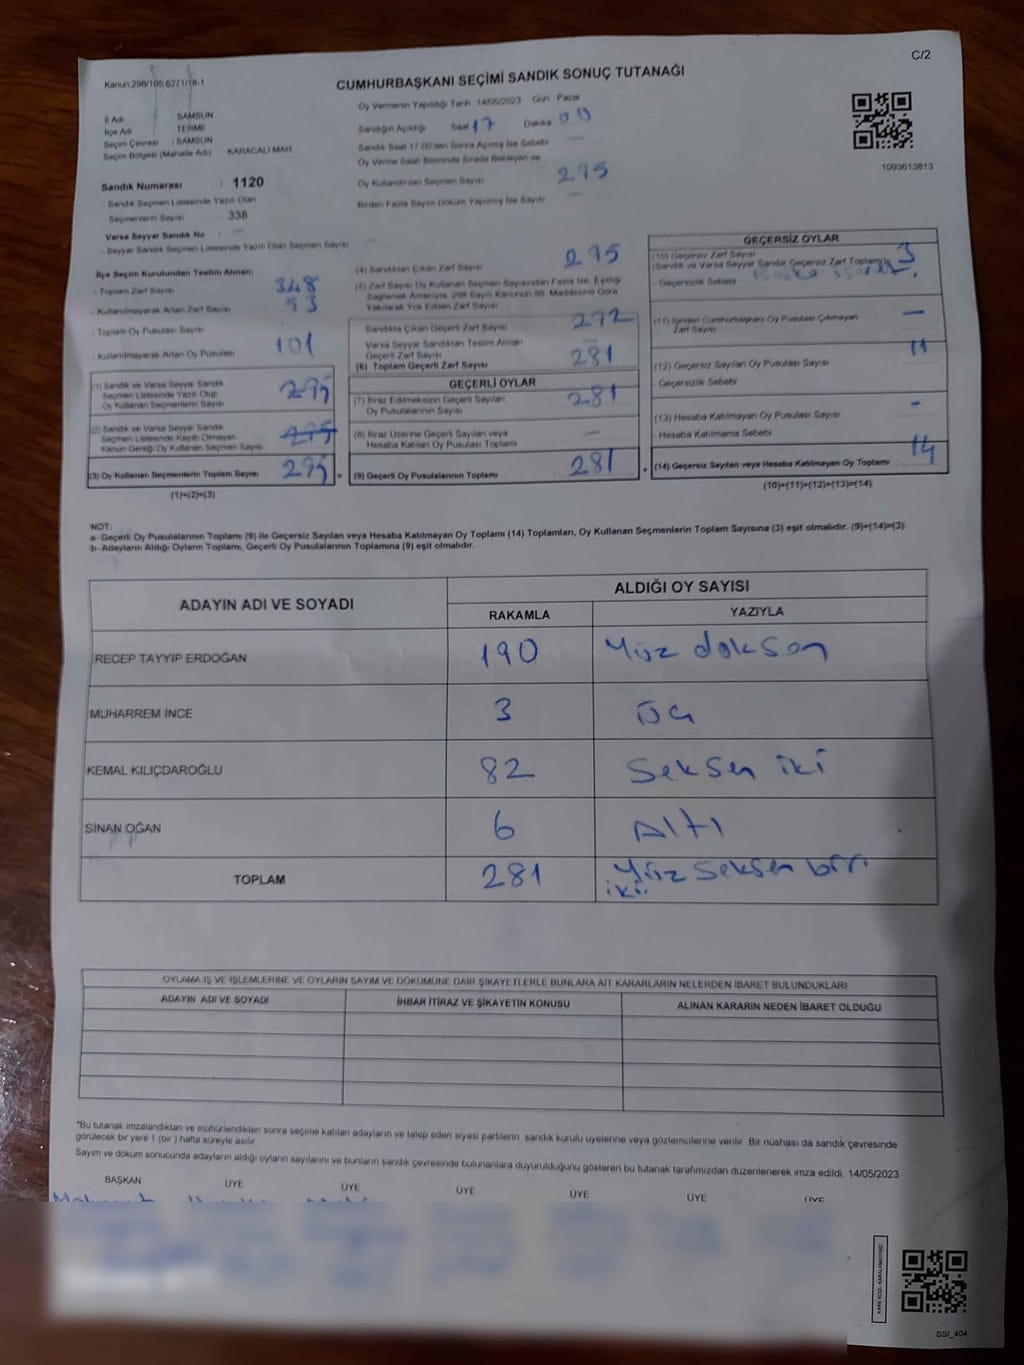 C/2
Kanun:298/105,6271/18-1
CUMHURBAŞKANI SEÇİMİ SANDIK SONUÇ TUTANAĞI
İl Adı : SAMSUN
İlçe Adı : TERME
Seçim Çevresi : SAMSUN
Seçim Bölgesi (Mahalle Adı) KARACALI MAH
Sandık Numarası : 1120
- Sandık Seçmen Listesinde Yazılı Olan
Seçmenlerin Sayısı 338
Varsa Seyyar Sandık No : —
- Seyyar Sandık Seçmen Listesinde Yazılı Olan Seçmen Sayısı
Oy Vermenin Yapıldığı Tarih 14/05/2023 Gün Pazar
Sandığın Açıldığı Saat 17 Dakika 00
Sandık Saat 17.00'den Sonra Açılmış İse Sebebi —
Oy Verme Saati Bitiminde Sırada Bekleyen ve
Oy Kullandırılan Seçmen Sayısı 295
Birden Fazla Sayım Döküm Yapılmış İse Sayısı —
1093613813
İlçe Seçim Kurulundan Teslim Alınan;
- Toplam Zarf Sayısı 348
- Kullanılmayarak Artan Zarf Sayısı 53
- Toplam Oy Pusulası Sayısı
- Kullanılmayarak Artan Oy Pusulası 101
(1) Sandık ve Varsa Seyyar Sandık
Seçmen Listesinde Yazılı Olup
Oy Kullanan Seçmenlerin Sayısı 295
(2) Sandık ve Varsa Seyyar Sandık
Seçmen Listesinde Kayıtlı Olmayan
Kanun Gereği Oy Kullanan Seçmen Sayısı 295
(3) Oy Kullanan Seçmenlerin Toplam Sayısı 295 =
(1)+(2)=(3)
(4) Sandıktan Çıkan Zarf Sayısı 295
(5) Zarf Sayısı Oy Kullanan Seçmen Sayısından Fazla İse, Eşitliği
Sağlamak Amacıyla, 298 Sayılı Kanunun 98. Maddesine Göre
Yakılarak Yok Edilen Zarf Sayısı
Sandıkta Çıkan Geçerli Zarf Sayısı 292
Varsa Seyyar Sandıktan Teslim Alınan
Geçerli Zarf Sayısı —
(6) Toplam Geçerli Zarf Sayısı 281
GEÇERLİ OYLAR
(7) İtiraz Edilmeksizin Geçerli Sayılan
Oy Pusulalarının Sayısı 281
(8) İtiraz Üzerine Geçerli Sayılan veya
Hesaba Katılan Oy Pusulası Toplamı —
(9) Geçerli Oy Pusulalarının Toplamı 281 +
GEÇERSİZ OYLAR
(10) Geçersiz Zarf Sayısı 3
(Sandık ve Varsa Seyyar Sandık Geçersiz Zarf Toplamı)
- Geçersizlik Sebebi
(11) İçinden Cumhurbaşkanı Oy Pusulası Çıkmayan
Zarf Sayısı —
(12) Geçersiz Sayılan Oy Pusulası Sayısı 11
Geçersizlik Sebebi
(13) Hesaba Katılmayan Oy Pusulası Sayısı -
- Hesaba Katılmama Sebebi
(14) Geçersiz Sayılan veya Hesaba Katılmayan Oy Toplamı 14
(10)+(11)+(12)+(13)=(14)
NOT:
a- Geçerli Oy Pusulalarının Toplamı (9) ile Geçersiz Sayılan veya Hesaba Katılmayan Oy Toplamı (14) Toplamları, Oy Kullanan Seçmenlerin Toplam Sayısına (3) eşit olmalıdır. (9)+(14)=(3)
b- Adayların Aldığı Oyların Toplamı, Geçerli Oy Pusulalarının Toplamına (9) eşit olmalıdır.
ADAYIN ADI VE SOYADI ALDIĞI OY SAYISI
RAKAMLA YAZIYLA
RECEP TAYYİP ERDOĞAN 190 Yüz doksan
MUHARREM İNCE 3 üç
KEMAL KILIÇDAROĞLU 82 Seksen iki
SİNAN OĞAN 6 Altı
TOPLAM 281 iki Yüz Seksen bir
OYLAMA İŞ VE İŞLEMLERİNE VE OYLARIN SAYIM VE DÖKÜMÜNE DAİR ŞİKAYETLERLE BUNLARA AİT KARARLARIN NELERDEN İBARET BULUNDUKLARI
ADAYIN ADI VE SOYADI İHBAR İTİRAZ VE ŞİKAYETİN KONUSU ALINAN KARARIN NEDEN İBARET OLDUĞU
*Bu tutanak imzalandıktan ve mühürlendikten sonra seçime katılan adayların ve talep eden siyasi partilerin sandık kurulu üyelerine veya gözlemcilerine verilir. Bir nüshası da sandık çevresinde
görülecek bir yere 1 (bir ) hafta süreyle asılır
Sayım ve döküm sonucunda adayların aldığı oyların sayılarını ve bunların sandık çevresinde bulunanlara duyurulduğunu gösteren bu tutanak tarafımızdan düzenlenerek imza edildi. 14/05/2023
BAŞKAN ÜYE ÜYE ÜYE ÜYE ÜYE ÜYE
KARE KODU KARALAMAYINIZ!
SSI_404